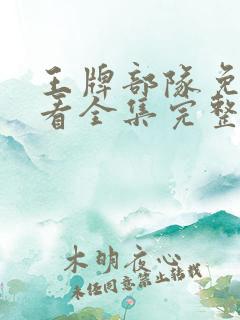 王牌部队免
看全集完整
木明夜心
未经同意禁止转载